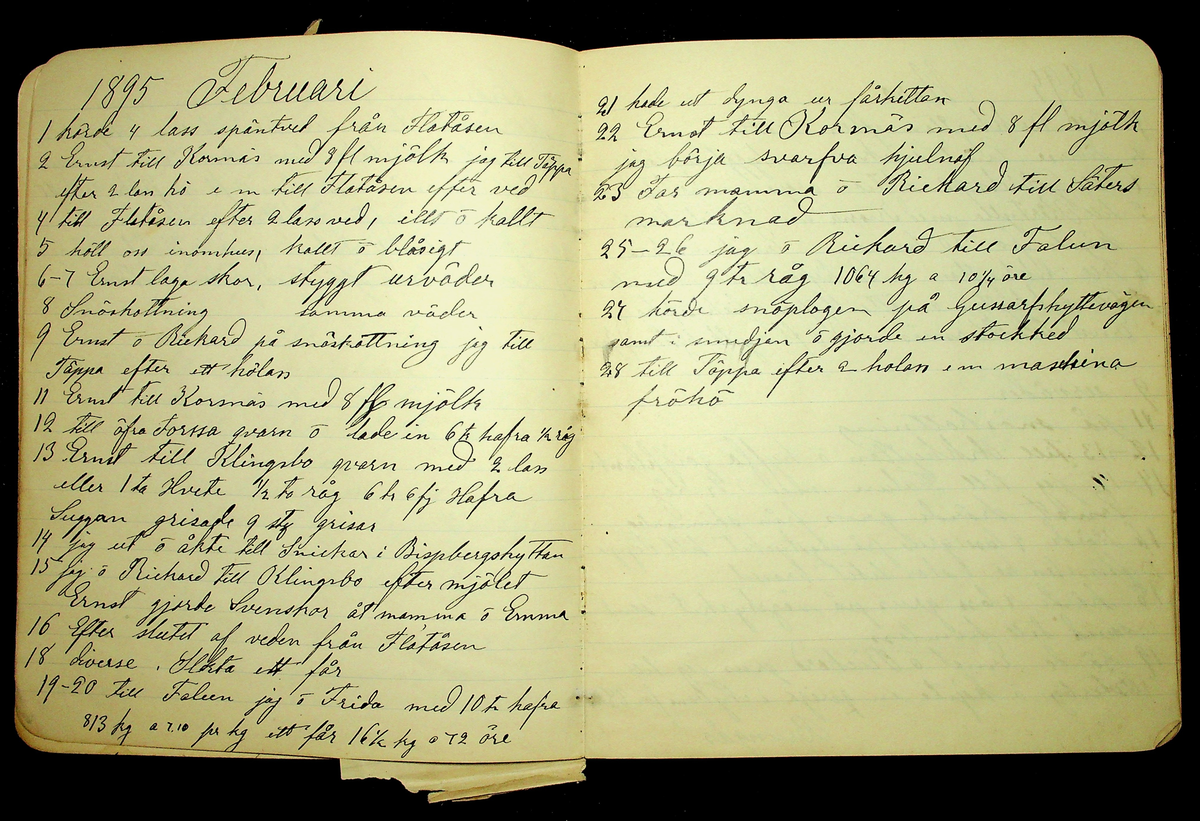 1895 Februari
1 körde 4 lass späntved från Flatåsen
2 Ernst till Kornäs med 8 fl mjölk jag till Täppa
efter 2 lan hö e m till Flatåsen efter ved
4 till Flatåsen efter 2 lass ved, illt ö kallt
5 höll oss inomhus, kallt ö blåsigt
6-7 Ernst laga skor, styggt urväder
8 Snöskottning samma väder
9 Ernst ö Rickard på snöskottning jag till
Täppa efter ett hölass
11 Ernst till Kornäs med 8 fl mjölk
12 till öfra Forssa qvarn ö lade in 6 tr hafra 1/2 råg
13 Ernst till Klingsbo qvarn med 2 lass
eller 1 ta Hvete 1/2 to råg 6 tr 6 fj Hafra
Suggan grisade 9 sty grisar
14 jag ut ö åkte till Snickar i Bispbergshyttan
15 jag ö Rickard till Klingsbo efter mjölet
Ernst gjorde Svenskor åt mamma ö Emma
16 Efter slutet af veden från Flatåsen
18 diverse. Slagta ett får
19-20 till Falun jag ö Frida med 10 tr hafra
813 kg a 7.10 pr kg ett får 16 1/2 kg a 72 öre
21 körde ut dynga ur fårkittan
22 Ernst till Kornäs med 8 fl mjölk
jag börja svarfva hjulnaf
23 Far mamma ö Rickard till Säters
marknad
25-26 jag ö Rickard till Falun
med 9 tr råg 1064 kg a 10 1/4 öre
27 körde snöplogen på Gussarfshyttevägen
samt i smedjen ö gjorde en stockked
28 till Täppa efter 2 hölass e m maskina
fröhö